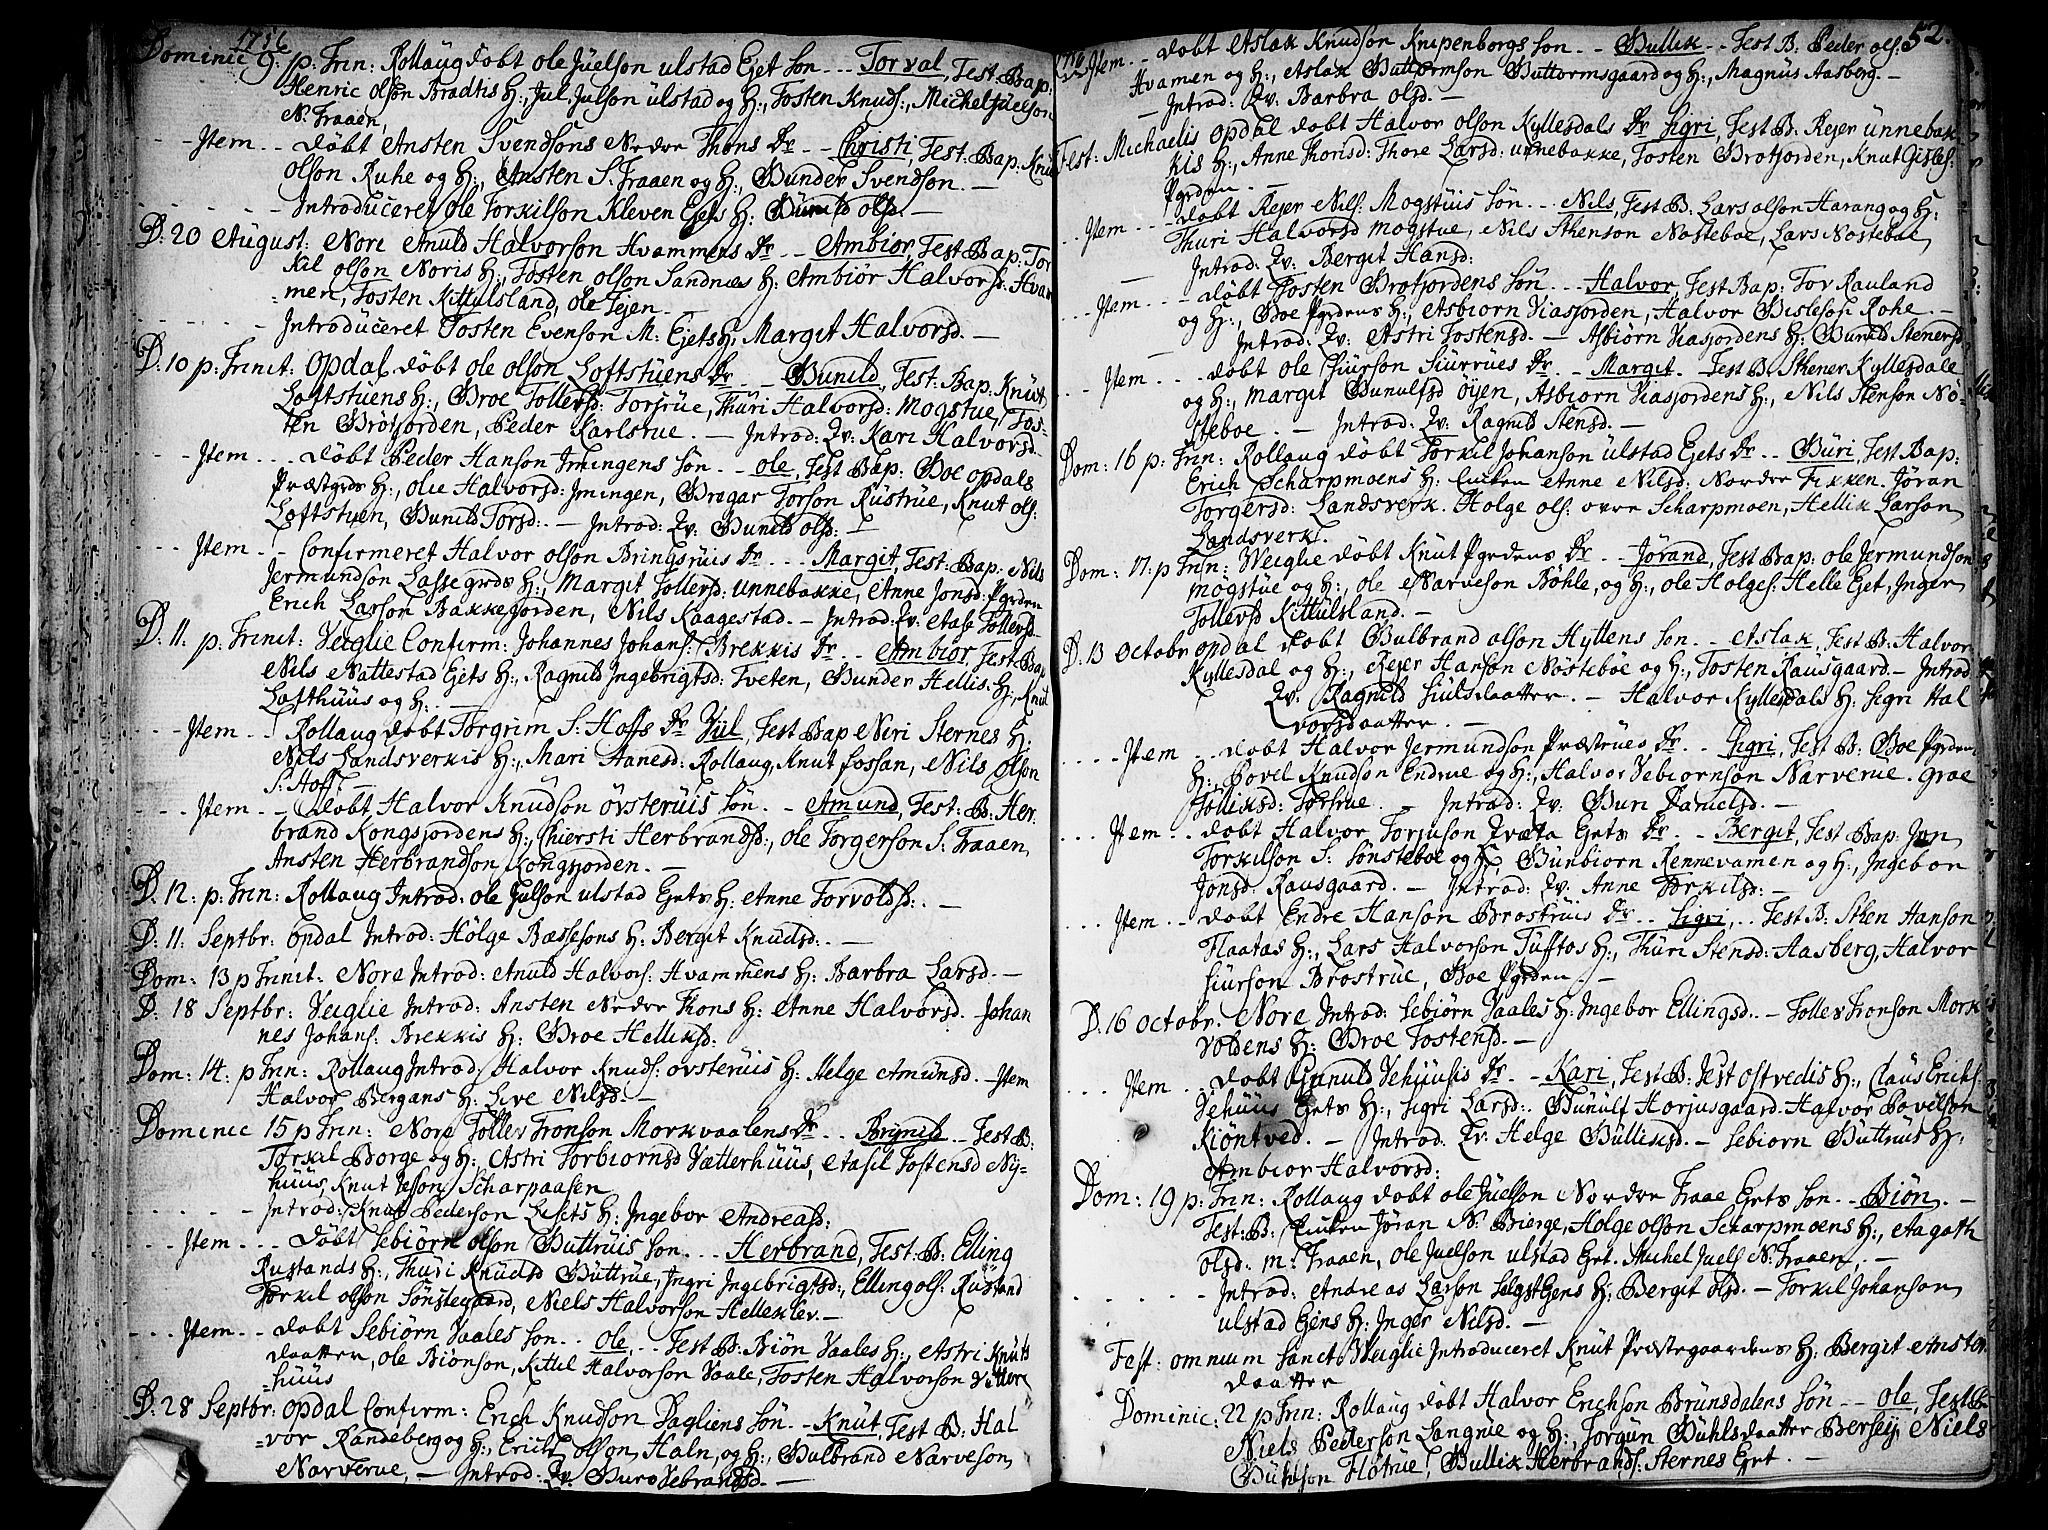 1756
Dominic 9. p: Trin: Rollaug døbt ole Juelson ulstad Eget søn - - - Torval, Test: Bap:
Henric olson Bradtis H:, Jul. Julson ulstad og H:, Tosten Knuds:, Michel Juelson
N: Fraaen,
- - Item - - døbt Ansten Svendsons Nordre Thons Dr - - Christi, Test: Bap: Knut
olson Ruhe og H:, Ansten S. Fraaen og H:, Gunder Svendson. -
- - - - - - Introduceret ole Torkilson Kleven Ejets H: Gunild olsd. -
D: 20 August: Nore Anuld Halvorson Hvammens Dr - - Ambiør, Test: Bap: Tor
kil olson Noris H:, Tosten olson Sandnæs H: Ambiør Halvorsd: Hvam
men, Tosten Kittulsland, ole Tejen. -
- - - - - - Introduceret Tosten Evenson M: Ejets H: Margit Halvorsd. -
D: 10 p: Trinit: Opdal døbt ole olson Loftstuens Dr - - Gunild, Test: Bap: Knut
Loftstuens H:, Groe Tollevsd: Torsrue, Thuri Halvorsd: Mogstue, Tos-
ten Brøtjorden, Peder Karlsrue. - Introd: Qv: Kari Halvorsd.
- - Item - - - døbt Peder Hanson Imingens søn - - ole, Test Bap: Boe opdals
Præstgrds H:, olie Halvorsd: Jmingen, Bragar Torson Rustrue, Knut ols:
Loftstuen, Gunild Torsd: - Introd: Qv: Gunild olsd: -
- - - Item - - Confirmeret Halvor olson Bringsruis Dr - - - Margit, Test: Bap: Nils
Jermundson Lassegrds H:, Margit Tollevsd: unnebakke, Anne Jonsd: Pgrden
Erich Larson Bakkejorden, Nils Kaagestad. - Introd: Qv: Aase Tollevsd.
D: 11. p: Trinit: Veiglie Confirm: Johannes Johans: Brekkis Dr - - Ambior, Test: Bap
Nils Nattestad Ejets H:, Ragnild Ingebrigtsd: Tveten, Gunder Hellis: H:, Knut
Lofthuus og H:. -
- - - Item - - Rollaug døbt Torgrim S: Hoffs Dr Jul, Test: Bap Neri Sternes H:
Nils Landsverkis H:, Mari Aanesd: Rollaug, Knut fossan, Nils olson
S: Hoff. -
- - - Item - - døbt Halvor Knudson øvsteruis søn. - Amund, Test: B: Her
brand Kongsjordens H:, Chiersti Herbrandsd:, ole Torgerson S: Fraaen,
Ansten Herbrandson Kongsjorden. -
D. 12: p: Trin: Rollaug Introd: ole Julson ulstad Eyets H: Anne Torvoldsd:. -
D: 11: Septbr: opdal Introd: Hølge Bassesons H: Bergit Knudsd:. -
Dom: 13 p Trinit: Nore Introd: Anuld Halvors: Hvammens H: Barbra Larsd. -
D. 18 Septbr: Veiglie Introd: Ansten Nordre Thons H: Anne Halvorsd. - Johan
nes Johans: Brekkis H: Groe Helliksd:
Dom: 14: p Trin: Rollaug Introd: Halvor Knuds: øvsteruis H: Helge Amunsd. - Item
Halvor Bergans H: Live Nilsd. -
Dominic 15 p Trin: Nore Tollev Tronson Morkvaalens Dr - - Brynild - - Test B:
Torkil Borge og H:, Astri Torbiornsd Vætterhuus, Aasil Tostensd Ny-
huus, Knut Scharpaasen
- - - - - - Introd: Knut Pederson Lejets H: Ingebor Andreasd:
- - - Item - - - døbt Sebiørn olson Buttruis søn - - - Herbrand, Test: B: Elling
Rustands H:, Thuri Knudsd Buttrue, Ingri Ingebrigtsd:, Elling ols: Rustand
Torkil olson Sønstegaard, Niels Halvorson Helleklev. -
- - - Item - - døbt Sebiørn Vaales søn. - ole, - - Test B: Biøn Vaales H:, Astri Knuts
daatter, ole Biønson, Kittil Halvorson Vaale, Tosten Halvorson Vetter
=huus
D: 28 Septbr: opdal Confirm: Erich Knudson Dagliens søn - - Knut, Test B: Hal
=vor Randeberg og H:, Erich olson Haln, og H:, Gulbrand Narveson
Narverue, - Introd: Qv: Guro Vebrandsd. -
52.
1756 Item - - døbt Aslak Knudson Knipenborgs søn - - Gullik - - Test B: Peder ols:
Hvamen og H:, Aslak Guttormson Guttormsgaard og H:, Magnus Aasberg. -
- Introd: Qv: Barbra olsd. -
Fest: Michaelis opdal døbt Halvor olson Kyllesdals Dr Sigri, Test B: Rejer unnebak
kis H:, Anne Thorisd: Thore Larsd: unnebakke, Tosten Brøtjorden, Knut Gisles:
Pgrden. -
- - Item - - - døbt Rejer Nils: Mogstuis søn - - - Nils, Test B: Lars olson Harang og H:
Thuri Halvorsd mogstue, Nils Sthenson Nosteboe, Lars Nosteboe,
- Introd: Qv: Bergit Hansd:
- - - Item - - - døbt Tosten Brøtjordens søn - - - Halvor, Test Bap: Tor Rauland
og H:, Boe Pgrdens H:, Asbiørn Viasjorden, Halvor Gisleson Rohe. -
- Introd: Qv: Astri Tostensd. - Asbiørn Viasjordens H: Gunild Stenersd.
- - Item - - - døbt ole Siurson Siurrues Dr - - Margit - Test B: Sthener Kyllesdale
og H:, Margit Gunulfsd øyen, Asbiørn Viasjordens H:, Nils Stenson Nø-
steboe. - Introd: Qv: Ragnild Stensd. -
Dom: 16 p: Trin: Rollaug døbt Torkil Johanson ulstad Ejets Dr - - Guri, Test Bap:
Erich Scharpmoens H: Enken Anne Nilsd: Nordre Fikken. Jøran
Torgersd: Landsverk. Holge ols: ovre Scharpmoen, Hellik Larson
Landsverk.
Dom: 17. p Trin: Weiglie døbt Knut Pgrdens Dr - - Jørand, Test Bap: ole Jermundson
mogstue og H:, ole Narveson Bøhle, og H:, ole Holges: Helle Ejet, Inger
Tollevsd Kittulsland. -
D: 13 Octobr opdal døbt Gulbrand olson Hyttens søn - - Aslak, Test B: Halvor
Kyllesdal og H:, Rejer Hanson Nøsteboe og H:, Tosten Rausgaard. - Introd:
Qv: Ragnild Siulsdaatter. - Halvor Kyllesdals H: Sigri Hal
vorsdaatter. -
- - - - Item - - døbt Halvor Jermundson Præstrues Dr - - Sigri, Test B: Boe Pgrdens
H:, Povil Knudson Endrue og H:, Halvor Vebiornson Narverue. Groe
Tolliksd: Torsrue. - Introd: Qv: Guri Danielsd. -
- - - Item - - døbt Halvor Torjuson Qvæta Ejets Dr - - Bergit, Test Bap: Jon
Torkilson S: Sønsteboe og H, Gunbiorn Rennevamen og H:, Ingebor
Jonsd: Rausgaard. - Introd: Qv: Anne Torkilsd: -
- - - Item - - døbt Endre Hanson Brostruis Dr - - Sigri, - - Test B: Sthen Hanson
Flaatas H:, Lars Halvorson Tufftos H:, Thuri Stensd: Aasberg, Halvor
Siurson Brostrue, Boe Pgrden -
D: 16 octobr. Nore Introd: Sebiørn Vaales H: Ingebor Ellingsd. - Tollev Tronson Mork
voldens H: Groe Tostensd. -
- - - Item - - døbt Gunuld Vehuusis Dr - - Kari, Test B: Test ostvedis H:, Claus Erichs:
Vehuus Ejets H:, Sigri Larsd: Gunulf Horjusgaard. Halvor Povilson
Kiøntved. - Introd: Qv: Helge Gulliksd. - Sebiorn Buttruis H:
Ambior Halvorsd:
Dom: 19 p: Trin: Rollaug døbt ole Juelson Nordre Fraae Eyets søn - - Biøn. -
Test: B: Enken Jøran N: Bierge, Holge olson Scharpmoens H:, Aagath
olsd: m: Fraaen, ole Juelson ulstad Eyet. Mickel Juels N: Fraaen, -
- - - - - Introd: Andreas Larson H: Bergit olsd. - Torkil Johanson
ulstad Ejens H: Inger Nilsd. -
Fest: omnium Sanct: Weiglie Introduceret Knut Præstegaardens H: Bergit Ansten
daatter
Dominic: 22 p Trin: Rollaug døbt Halvor Erichson Brunsdalens søn - - ole, Test B:
Niels Pederson Langrue og H:, Jørgun Buhlsdaatter Bersey, Niels
Buhlson Fløtrue, Gullik Herbrands: Sternes Eyet. -